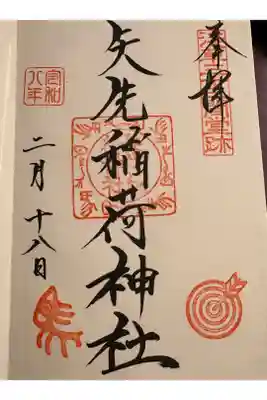 奉拝
矢先稲荷神社
令和八年
二月十八日